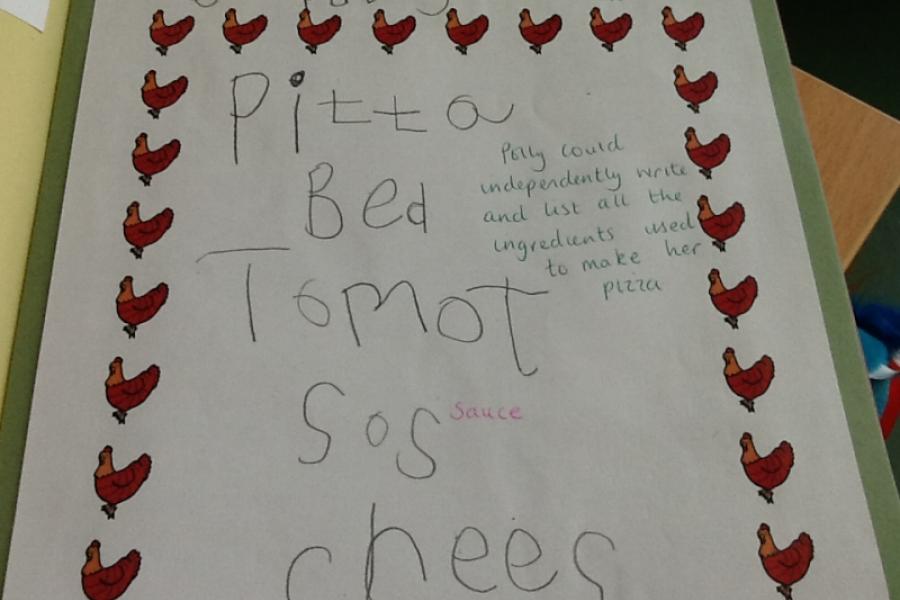 Pitta
Bed
Polly could
independently write
and list all the
ingredients used
to make her
pizza
Tomot
Sos
Sauce
chees